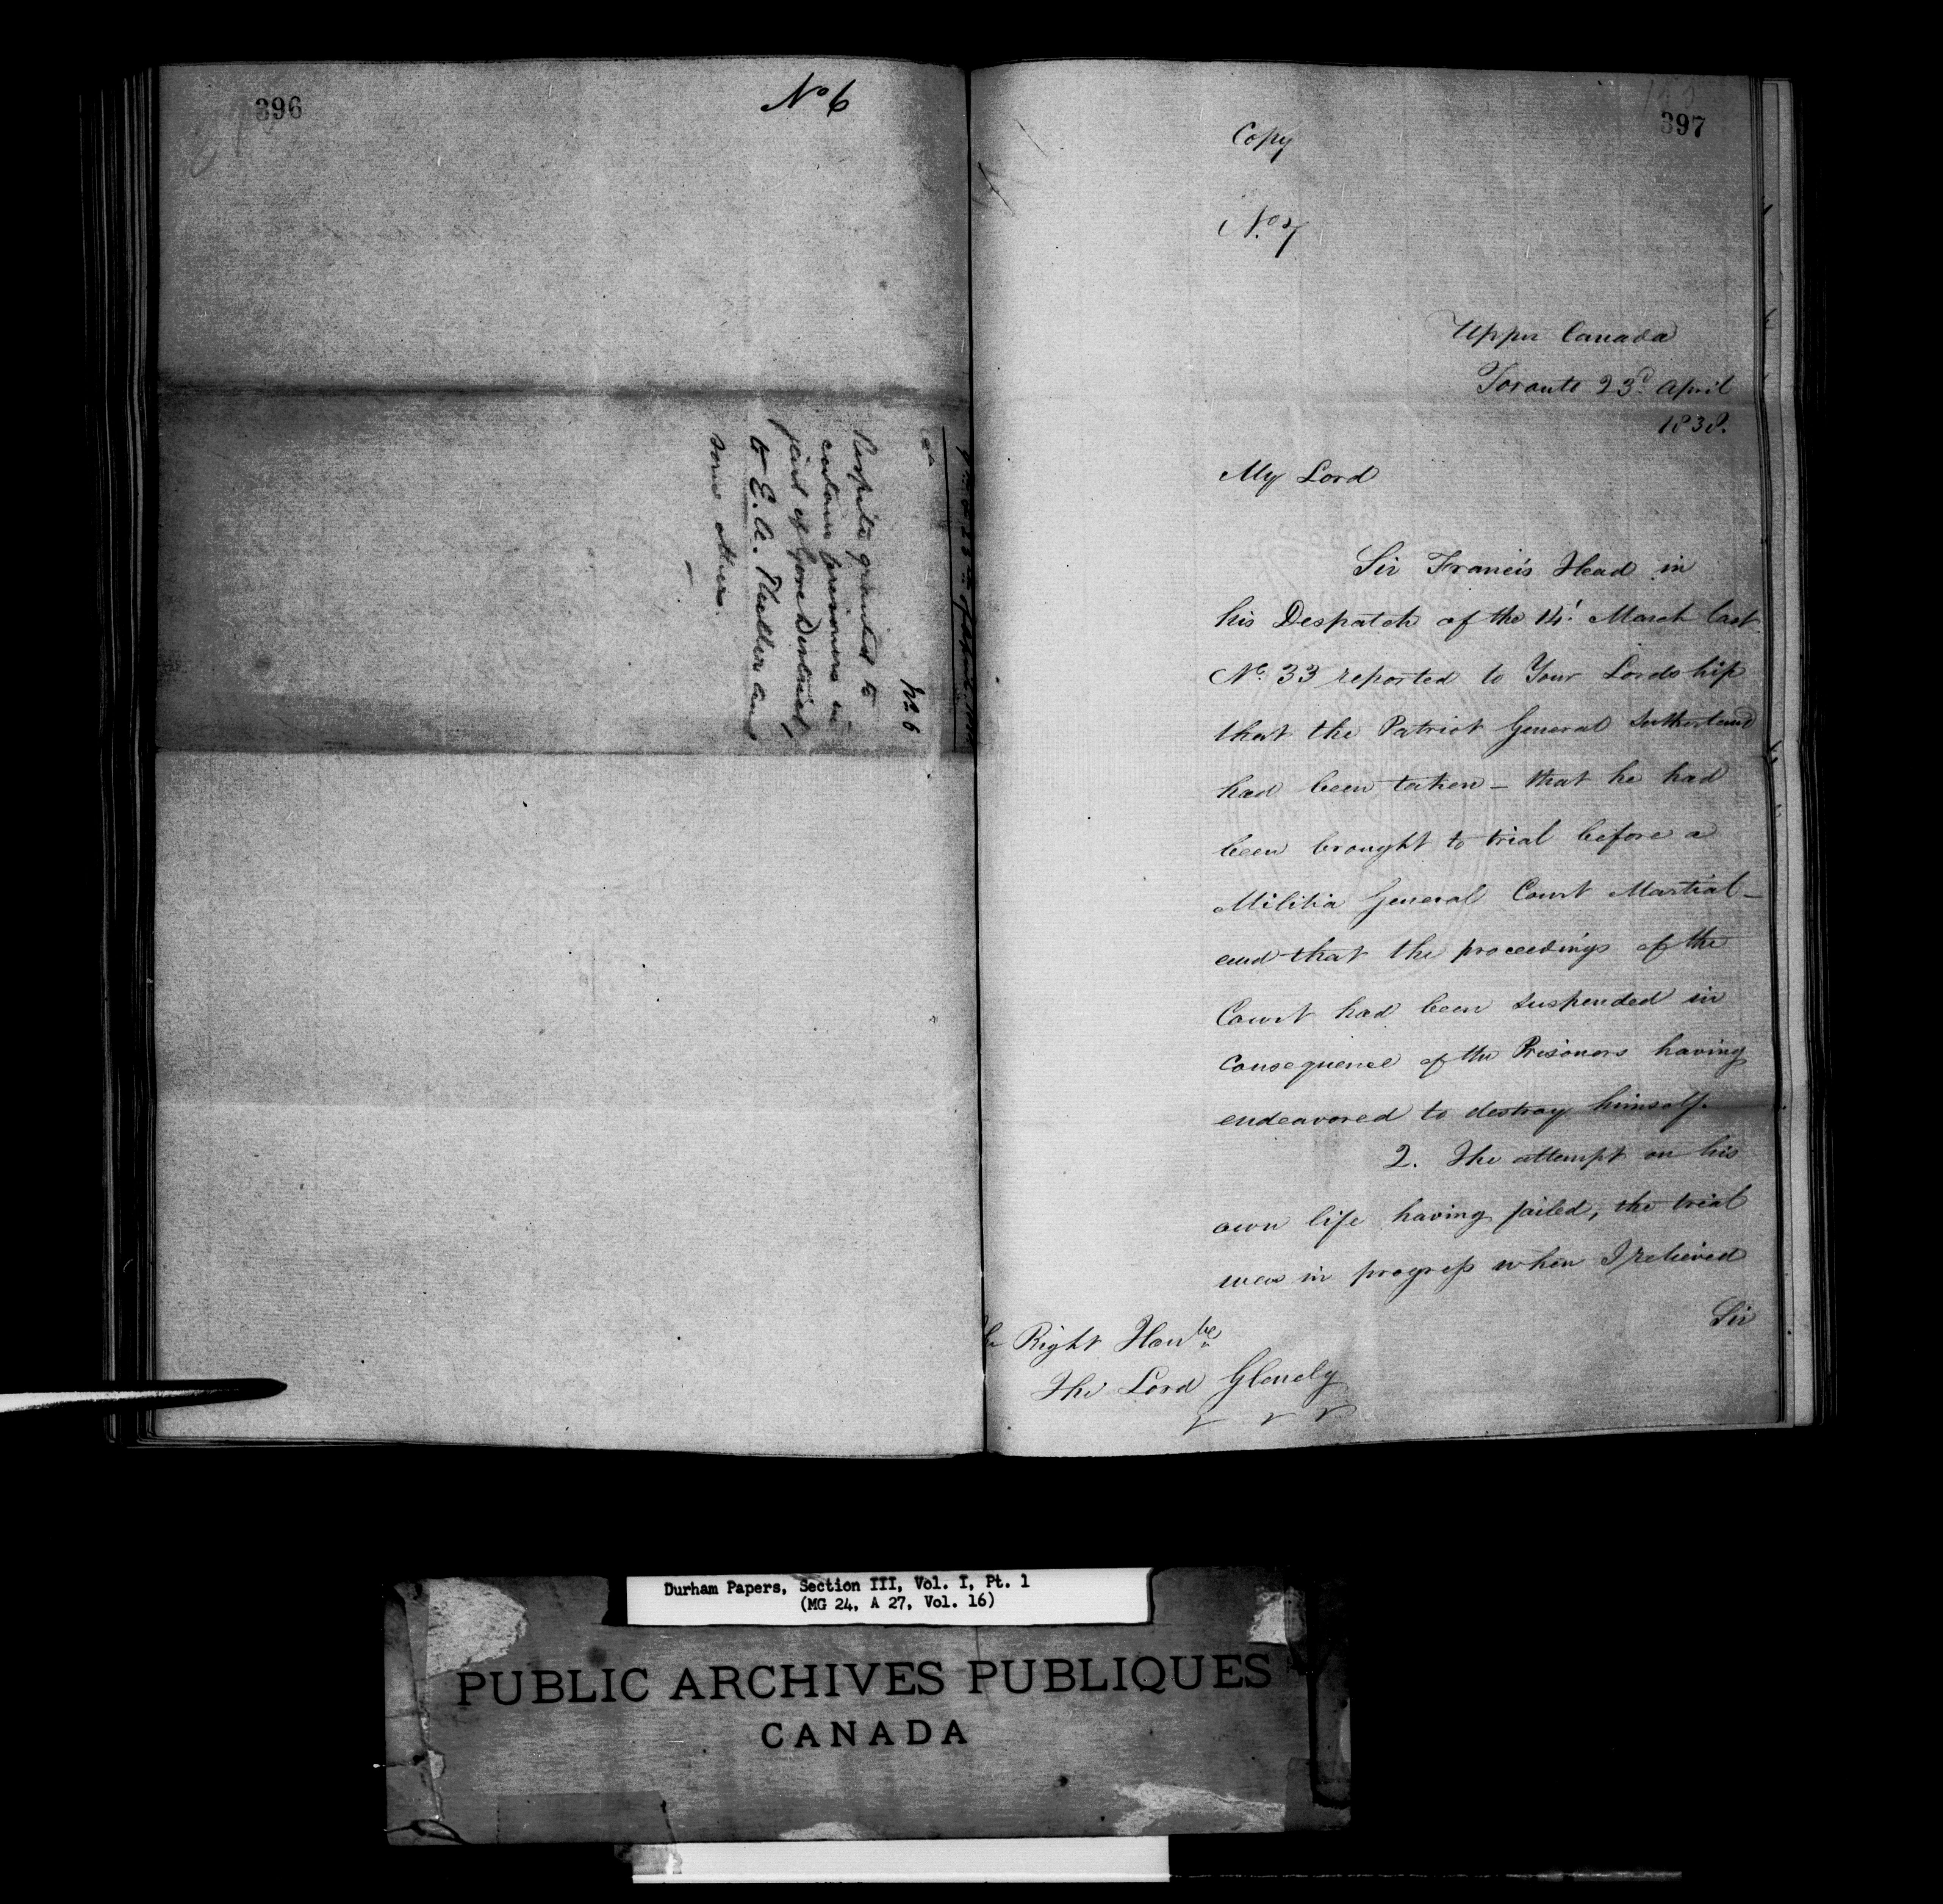 396
No 6
No 6
Respite granted to
certain prisoners in
jail of Gore District,
to E. A. Theller and
some others.
397
Copy
No. 7
Upper Canada
Toronto 23d. April
1838.
My Lord
Sir Francis Head in
his Despatch of the 14t. March last
No. 33 reported to Your Lordship
that the Patriot General Sutherland
had been taken – that he had
been brought to trial before a
Militia General Court Martial –
and that the proceedings of the
Court had been suspended in
Consequence of the Prisoners having
endeavored to destroy himself.
2. The attempt on his
own life having failed, the trial
was in progress when I relieved
Sir
Right Honble
The Lord Glenelg
Durham Papers, Section III, Vol. I, Pt. 1
(MG 24, A 27, Vol. 16)
PUBLIC ARCHIVES PUBLIQUES
CANADA